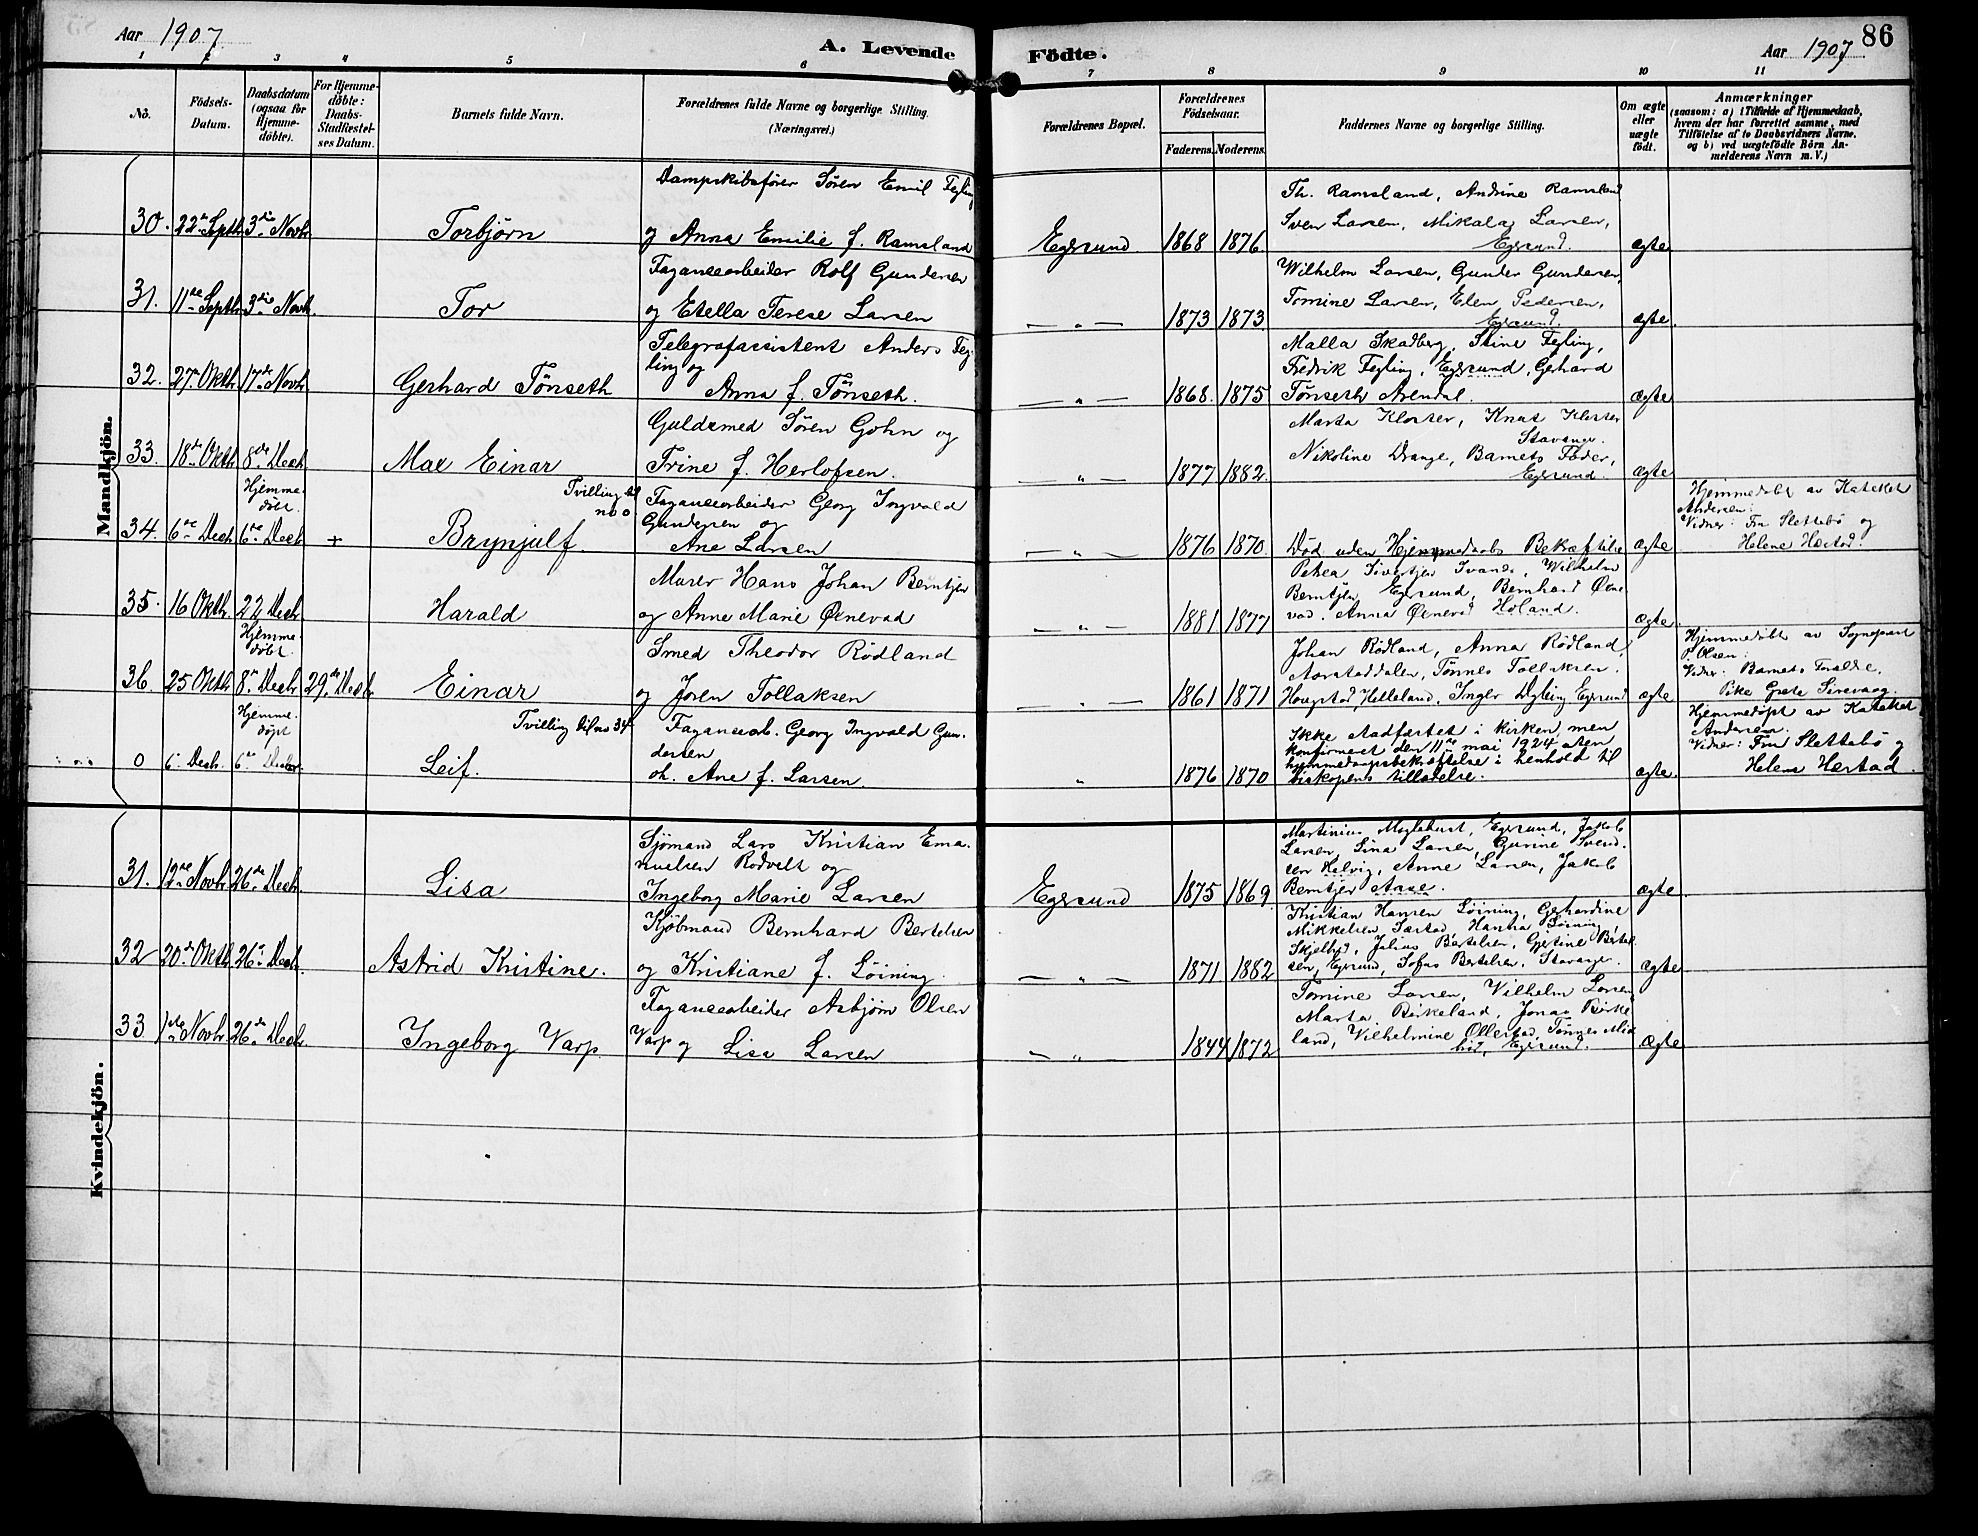 Aar 1907
A. Levende
Födte.
Aar 1907
86
1 2 3 4 5 6 7 8 9 10 11
No.
Födsels-
Datum.
Daabsdatum
(ogsaa for
Hjemme-
döbte).
For Hjemme-
döbte:
Daabs-
Stadfæstel-
ses Datum.
Barnets fulde Navn.
Forældrenes fulde Navne og borgerlige Stilling.
(Næringsvei.)
Forældrenes Bopæl.
Forældrenes
Födselsaar.
Faderens. Moderens.
Faddernes Navne og borgerlige Stilling.
Om ægte
eller
uægte
födt.
Anmærkninger
(saasom: a) i Tilfælde af Hjemmedaab,
hvem der har forrettet samme, med
Tilföielse af to Daabsvidners Navne,
og b) ved uægtefödte Börn An-
melderens Navn m. V.)
Mandkjön.
30. 22de Septbr 3die Novbr Torbjörn
Dampskibsfører Sören Emil Fegling
og Anna Emilie f. Ramsland
Egersund 1868 1876
Th. Ramsland, Andrine Ramsland
Sven Larsen, Mikala Larsen,
Egersund.
ægte
31. 11te Septbr 3die Novbr Tor
Fayancearbeider Rolf Gundersen
og Etella Terese Larsen
— " — 1873 1873
Wilhelm Larsen, Gunder Gundersen,
Tomine Larsen, Elen Pedersen,
Egersund.
ægte
32. 27de Oktbr 17de Novbr Gerhard Tönseth
Telegrafassistent Anders Feg-
ling og
Anna f. Tönseth.
— " — 1868. 1875
Malla Skadberg, Stine Fegling,
Fredrik Fegling, Egersund, Gerhard
Tönseth Arendal.
ægte
33. 18de Oktbr 8de Decbr Max Einar
Guldsmed Sören Gohn og
Trine f. Herlofsen.
— " — 1877 1882
Marta Kloster, Knut Kloster
Stavanger.
Nikoline Drange, Barnets Fader,
Egersund.
ægte
34. 6te Decbr Hjemme-
döbt.
6te Decbr +
Tvilling til
no 0
Brynjulf.
Fayancearbeider Georg Ingvald
Gundersen og
Ane Larsen
— " — 1876 1870
Död uden Hjemmedaabs Bekræftelse
ægte
Hjemmedöbt av Kateket
Andersen:
Vidner: Fru Slettebö og
Helene Hæstad.
35. 16 Oktbr 22 Decbr Harald
Murer Hans Johan Berntsen
og Anne Marie Ørnevad
— " — 1881 1877
Petra Sivertsen Svanes, Wilhelm
Berntsen Egersund, Bernhard Ørne
vad, Anna Ørnevad Höland.
ægte
36. 25 Oktbr Hjemme-
döbt.
8de Decbr 29de Decbr Einar
Smed Theodor Rödland
og Joren Tollaksen
— " — 1861 1871
Johan Rödland, Anna Rödland
Aarstaddalen, Tönnes Tollaksen.
Haugstad, Helleland, Inger Dyling Egersund
ægte
Hjemmedöbt av Sognepræst
P. Olsen:
Vidner: Barnets Forældre,
Pike Grete Sirevaag.
0 6. Decbr. Hjemme-
döpt
6te Decbr.
Tvilling til no 34
Leif.
Fayancearb. Georg Ingvald Gun-
dersen
oh. Ane f. Larsen.
" 1876 1870
Ikke stadfæstet i kirken, men
konfirmeret den 11te mai 1924 uten
hjemmedaapsbekræftelse i henhold til
biskopens tilladelse.
ægte.
Hjemmedöpt av Kateket
Andersen.
Vidner: Fru Slettebö og
Helene Hæstad.
Kvindekjön.
31. 12te Novbr 26de Decbr Lisa
Sjömand Lars Kristian Ema-
nuelsen Rodvelt og
Ingeborg Marie Larsen
Egersund 1875 1869
Martinius Myglehust, Egersund, Jakob
Larsen, Sina Larsen, Gurine Svend-
sen Helvig, Anne Larsen, Jakob
Berntsen Aase.
ægte
32 20de Oktbr 26de Decbr. Astrid Kristine.
Kjöbmand Bernhard Bertelsen
og Kristiane f. Löining.
— " — 1871 1882
Kristian Hansen Löining, Gerhardine
Mikkelsen Sæstad, Hanna Löining,
Skjelbred, Julius Bertelsen, Gjertine Bertel-
sen, Egersund, Sofus Bertelsen, Stavanger.
ægte
33 1ste Novbr. 26de Decbr. Ingeborg Varp
Fayancearbeider Asbjörn Olsen
Varp og Lisa Larsen
— " — 1844 1872
Tomine Larsen, Vilhelm Larsen,
Marta Birkeland, Jonas Birke
land, Vilhelmine Ollestad, Tönnes Mid
bröd, Egersund.
ægte